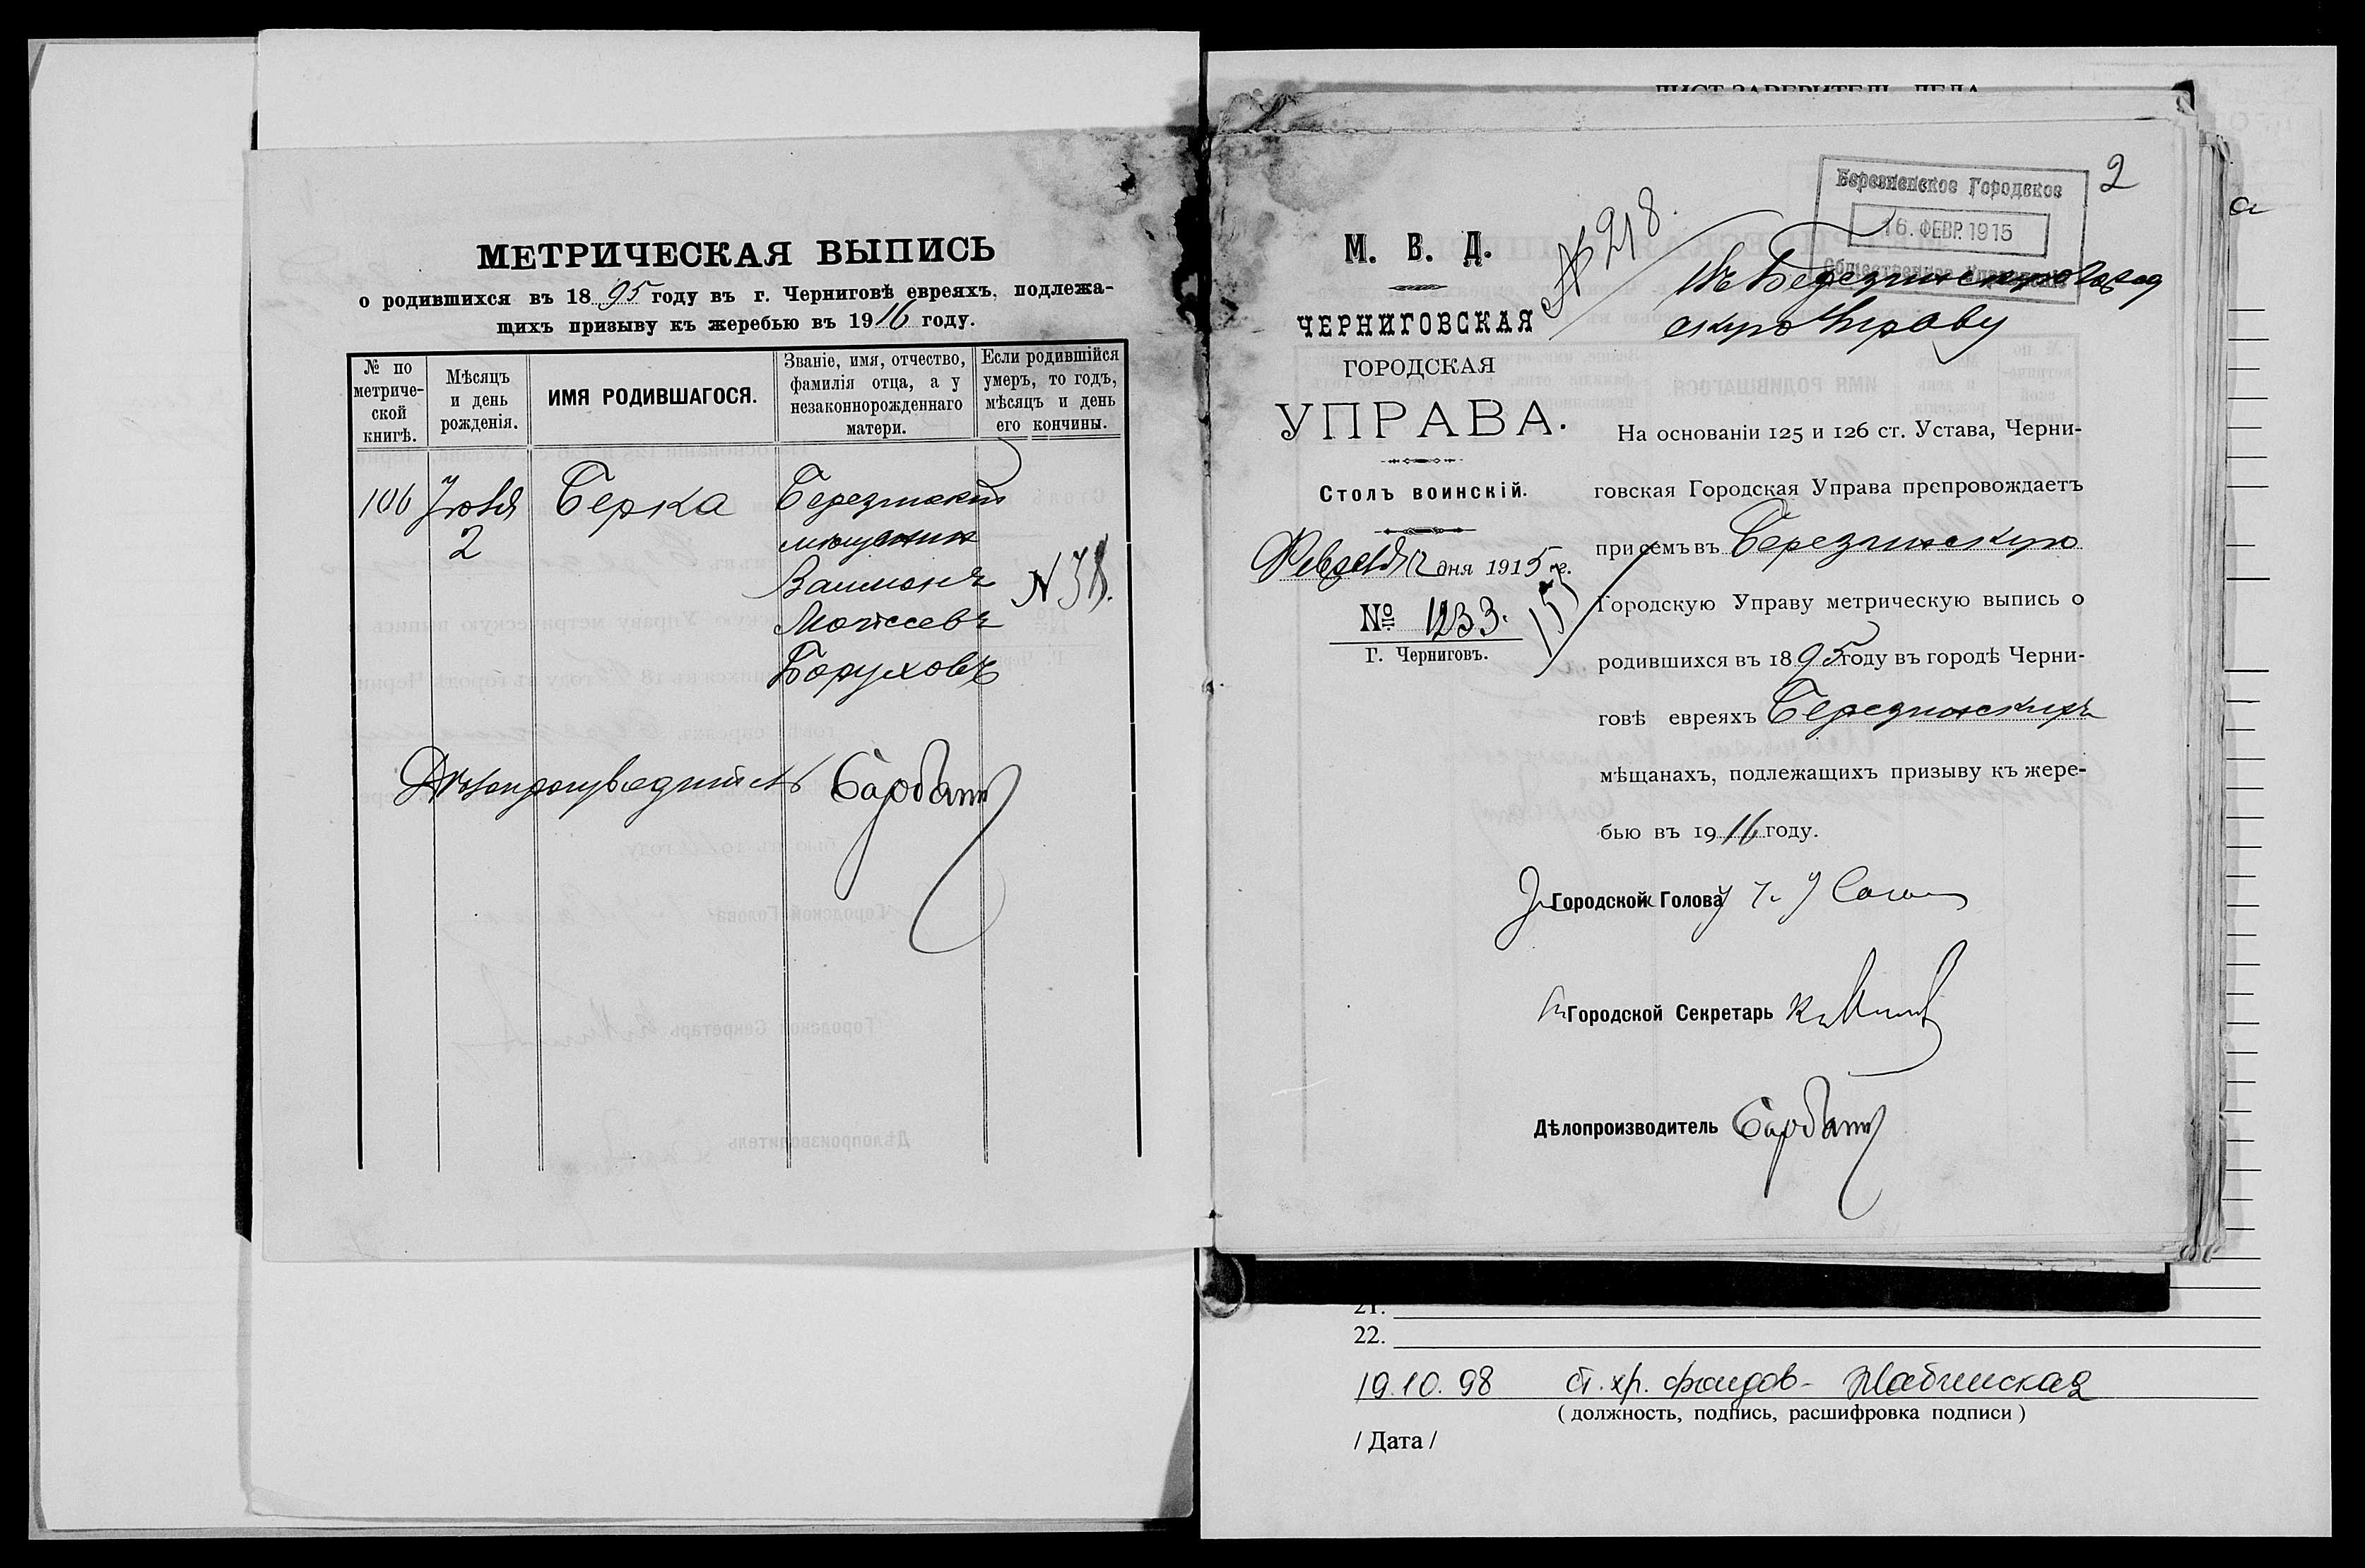 МЕТРИЧЕСКАЯ ВЫПИСЬ
о родившихся въ 1895 году въ г. Черниговѣ евреяхъ, подлежа-
щихъ призыву къ жеребью въ 1916 году.
№ по метриче-ской книгѣ.
Мѣсяцъ и день рожденія.
ИМЯ РОДИВШАГОСЯ.
Званіе, имя, отчество, фамилія отца, а у незаконнорожденнаго матери.
Если родившійся умеръ, то годъ, мѣсяцъ и день его кончины.
106 Іюня Берка Березинскій
2 мѣщанин
Залманъ
Моисеевъ
Боруховъ
Дѣлопроизводитель
ЛИСТ-ЗАВЕРИТЕЛЬ ДЕЛА
2
Березненское Городское
16. ФЕВР. 1915
Общественное Управленіе
№ 218
М. В. Д.
ЧЕРНИГОВСКАЯ
ГОРОДСКАЯ
УПРАВА.
Столъ воинскій.
Февраля 12 дня 1915 г.
№ 1233.
Г. Черниговъ.
Въ Березинскую Город
скую Управу
На основаніи 125 и 126 ст. Устава, Черни-
говская Городская Управа препровождаетъ
при семъ въ Березинскую
Городскую Управу метрическую выпись о
родившихся въ 1895 году въ городѣ Черни-
говѣ евреяхъ Березинскихъ
мѣщанахъ, подлежащихъ призыву къ жере-
бью въ 1916 году.
Городской Голова
Городской Секретарь
Дѣлопроизводитель
21.
22.
19.10.98 ст. хр. фондов-
( должность, подпись, расшифровка подписи )
/ Дата /